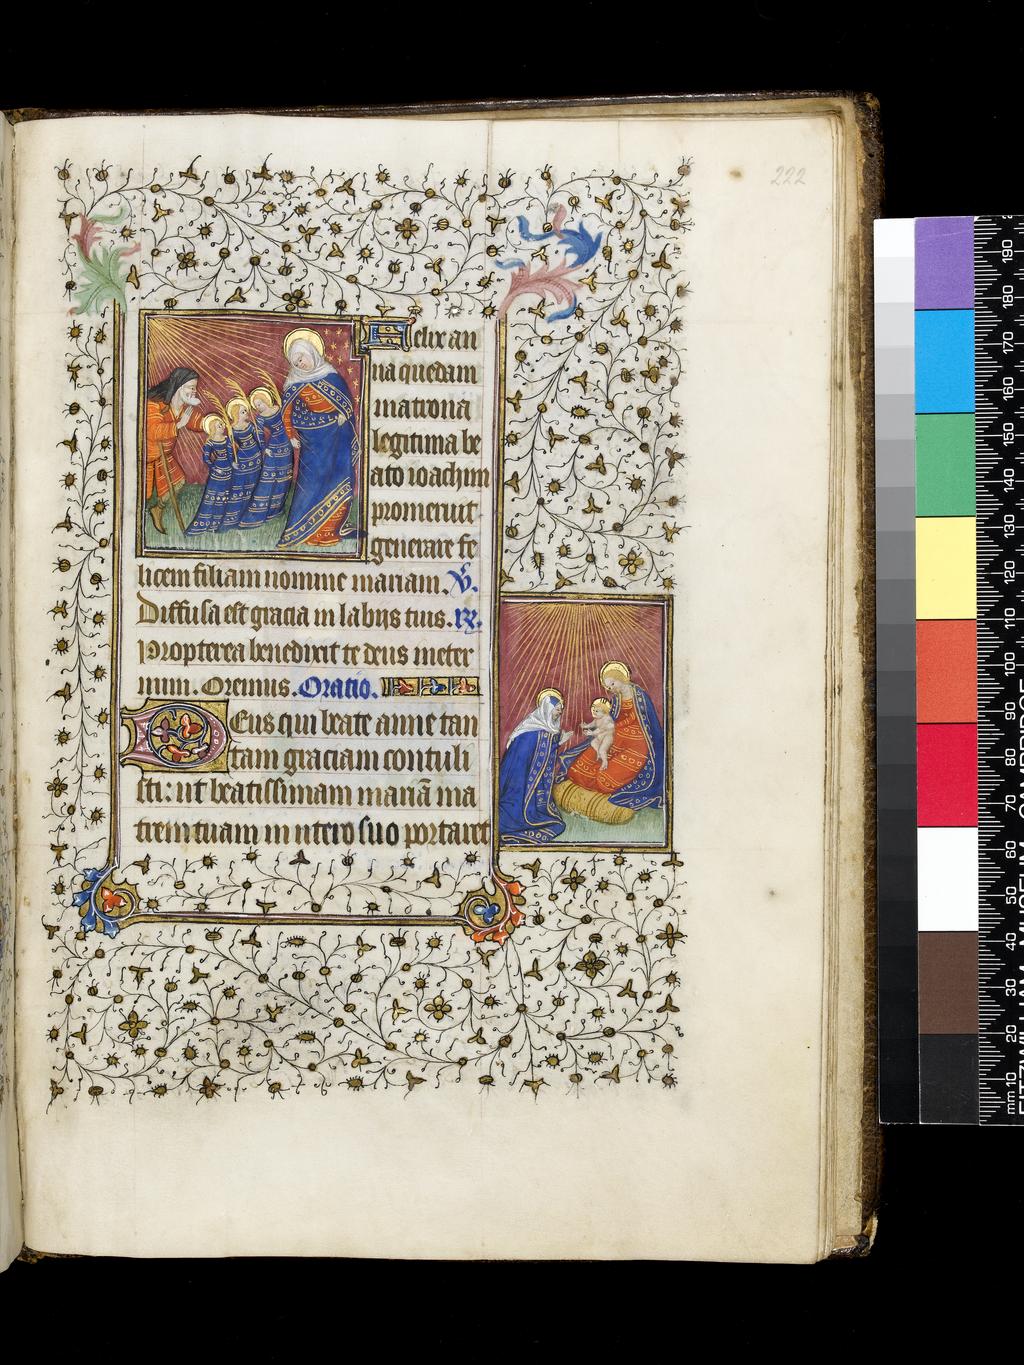 222
Felix an
na quedam
matrona
legitima be
ato ioachim
promeruit
generare fe
licem filiam nomine mariam. V.
Diffusa est gracia in labijs tuis. R.
Propterea benedixit te deus in eter
num. Oremus. Oratio.
Deus qui beate anne tan
tam graciam contuli
sti: ut beatissimam mariā ma
trem tuam in utero suo portaret
mm 10 20 30 40 50 60 70 80 90 100 110 120 130 140 150 160 170 180 190
FITZWILLIAM MUSEUM CAMBRIDGE